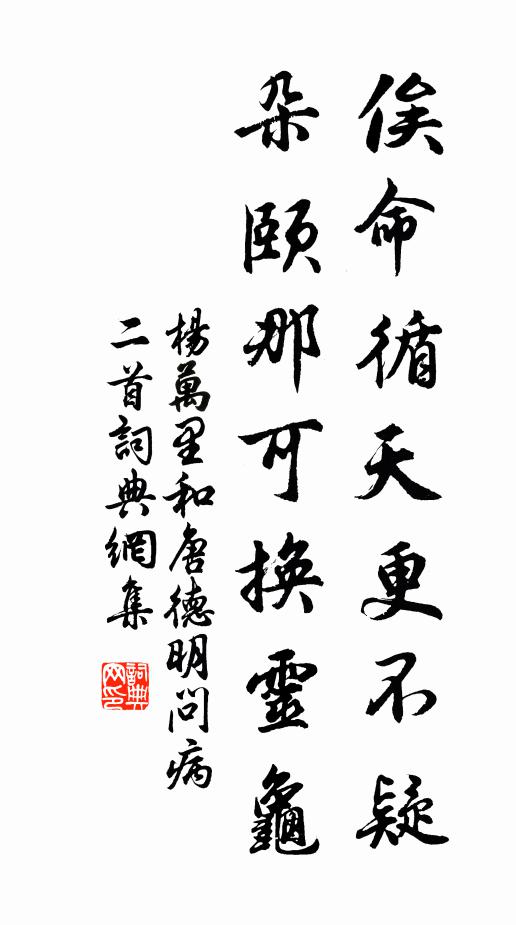 俟命循天更不疑
朵頤那可換靈龜
楊萬里和唐德明問病
二首詞典網集
詞典網印